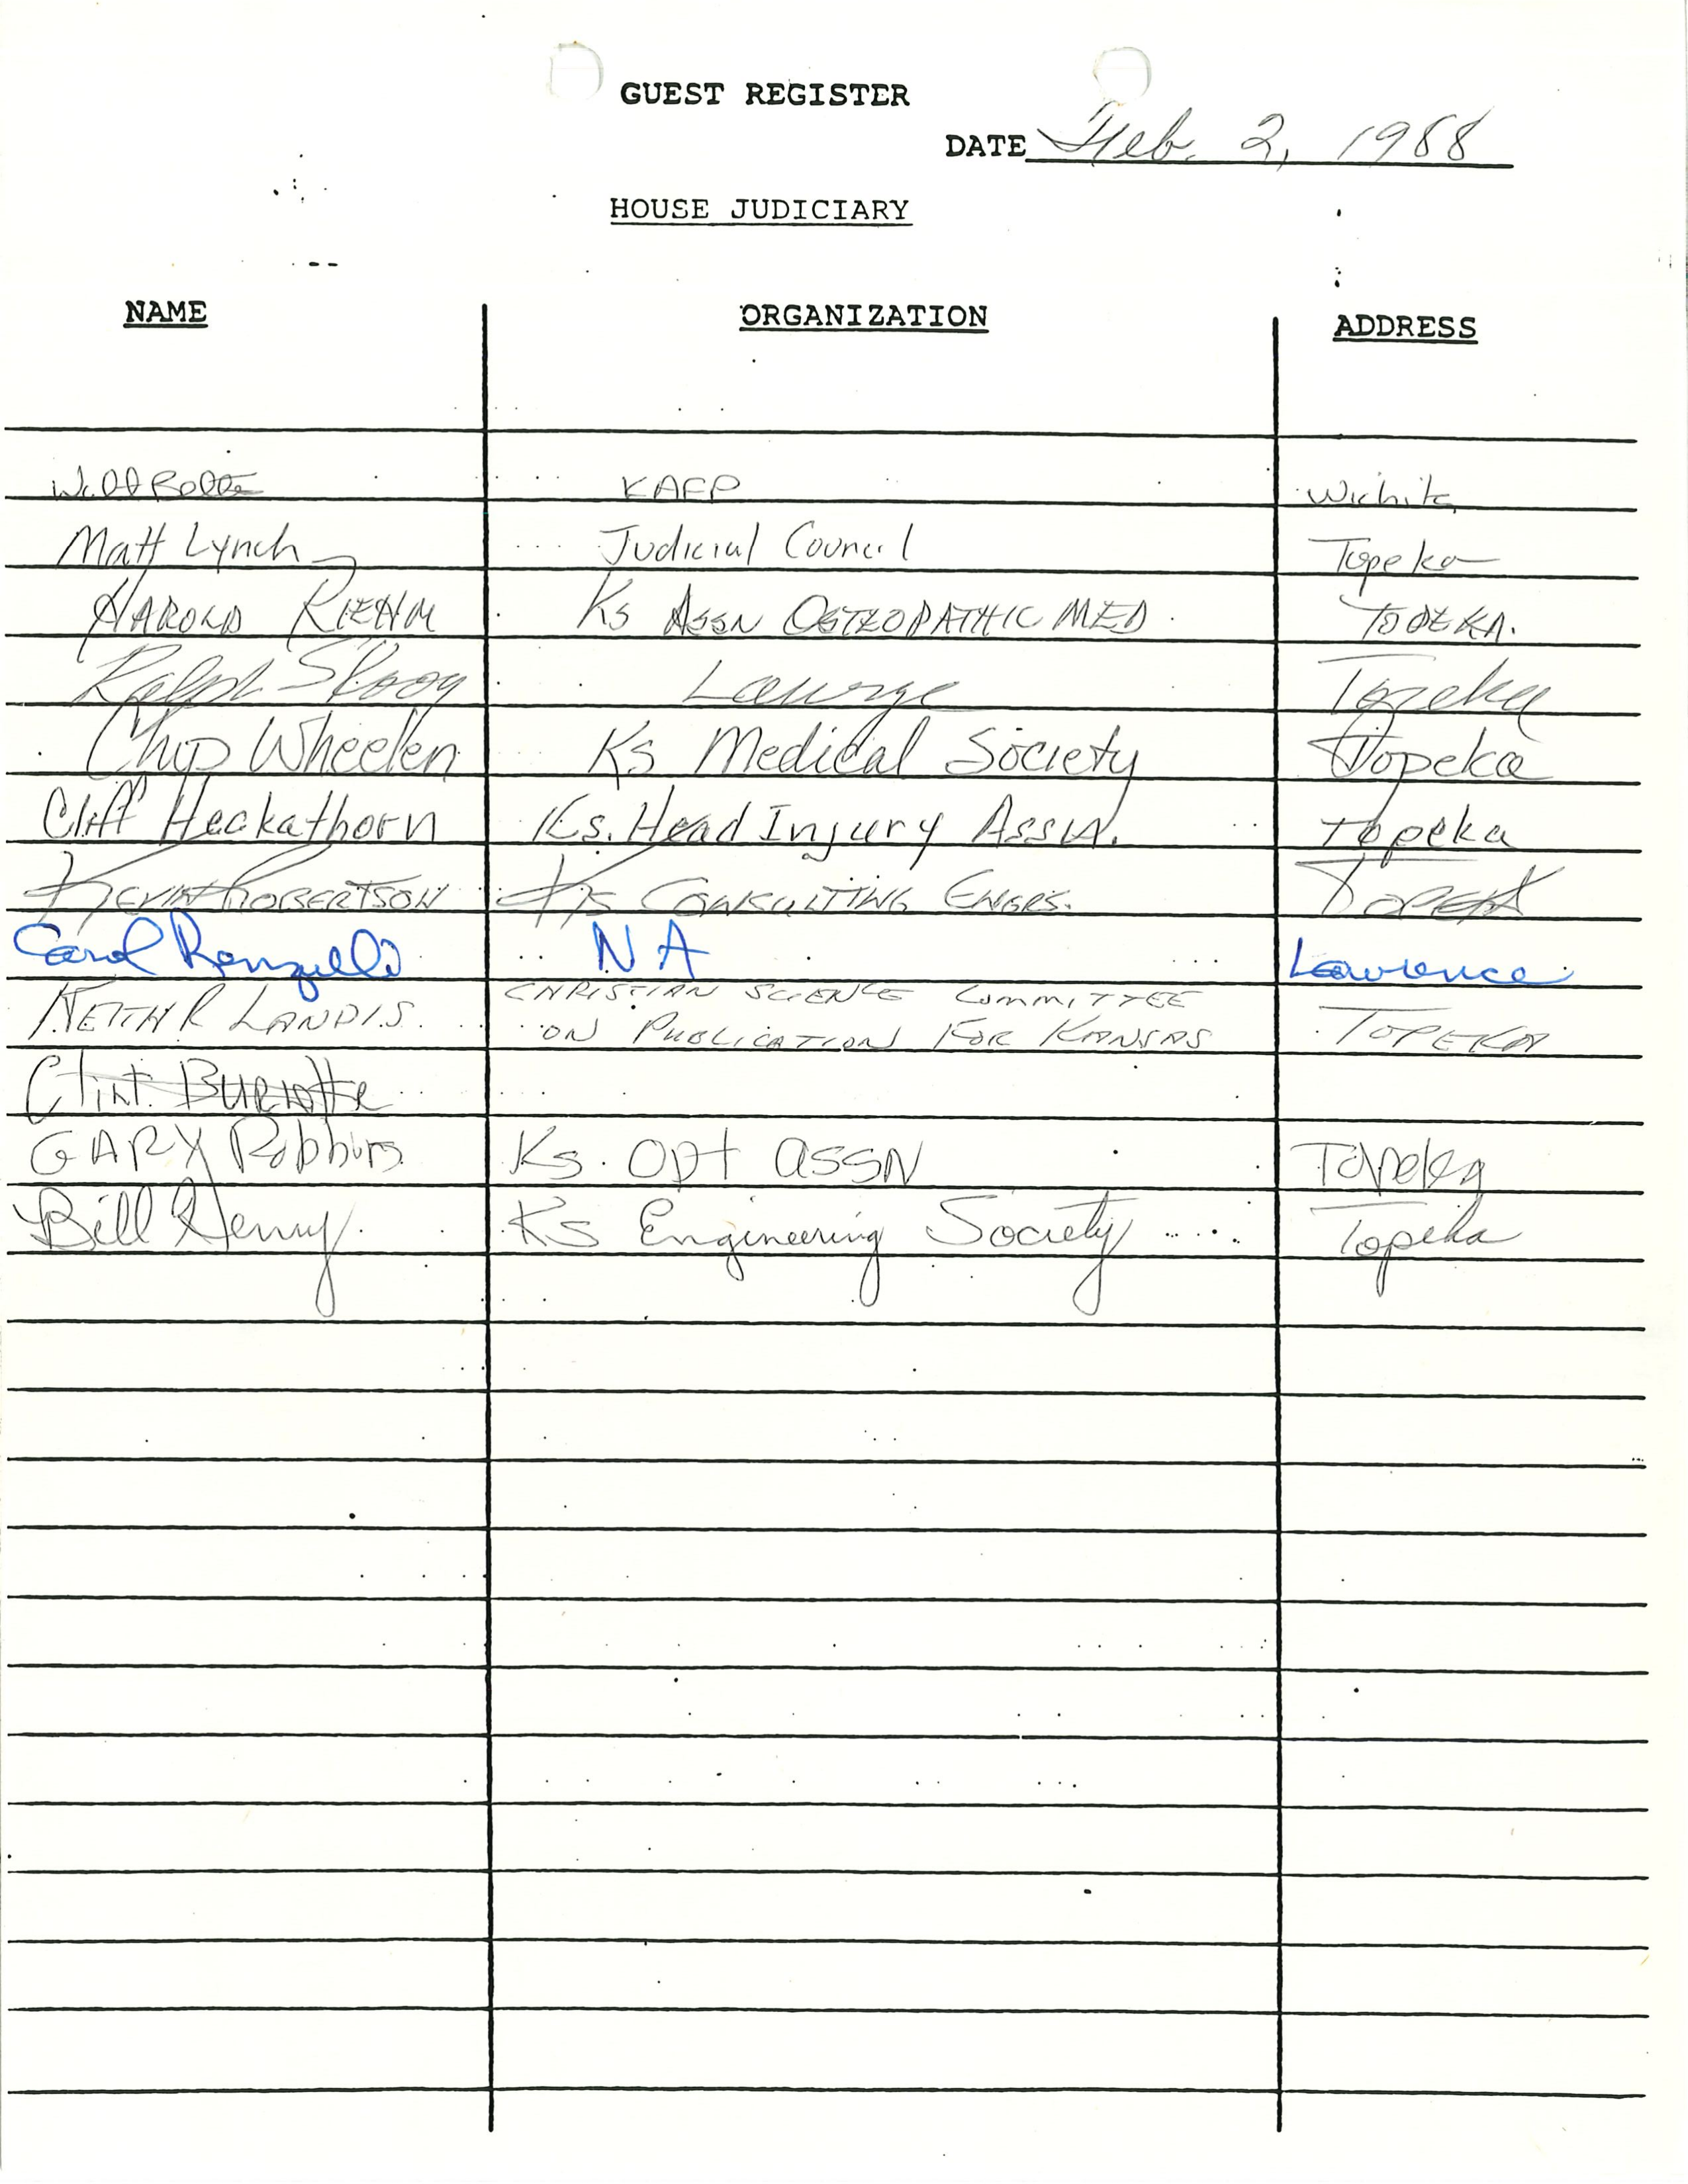 GUEST REGISTER
DATE Feb. 2, 1988
HOUSE JUDICIARY
NAME ORGANIZATION ADDRESS
KAFP Wichita
Matt Lynch Judicial Council Topeka
HAROLD RIEHM Ks ASSN OSTEOPATHIC MED TOPEKA.
Ralph Skoog Topeka
Chip Wheelen Ks Medical Society Topeka
Cliff Heckathorn Ks. Head Injury Assn. Topeka
KEVIN ROBERTSON KS CONSULTING ENGRS. TOPEKA
Carol Renzulli NA Lawrence
KEITH R LANDIS CHRISTIAN SCIENCE COMMITTEE
ON PUBLICATION FOR KANSAS TOPEKA
Clint
GARY Robbins Ks. Opt ASSN Topeka
Bill Henry Ks Engineering Society Topeka